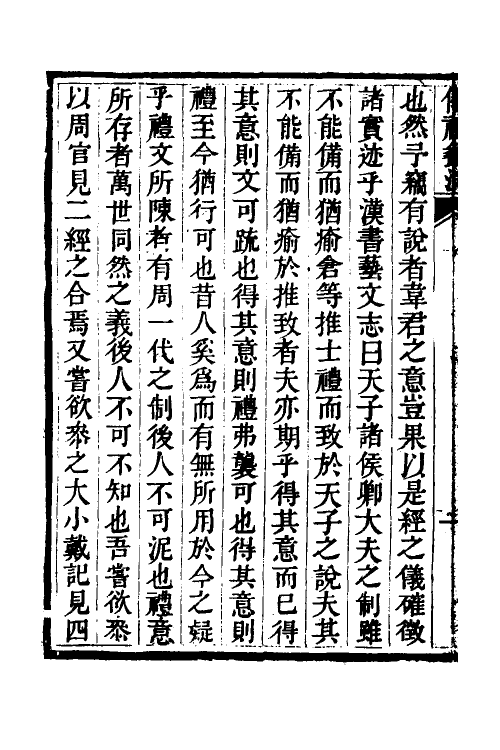 也然予竊有說者韋君之意豈果以是經之儀確徵
諸實迹乎漢書藝文志曰天子諸侯卿大夫之制雖
不能備而猶瘉倉等推士禮而致於天子之說夫其
不能備而猶瘉於推致者夫亦期乎得其意而已得
其意則文可䟽也得其意則禮弗襲可也得其意則
禮至今猶行可也昔人奚爲而有無所用於今之疑
乎禮文所陳者有周一代之制後人不可泥也禮意
所存者萬世同然之義後人不可不知也吾嘗欲叅
以周官見二經之合焉又嘗欲叅之大小戴記見四